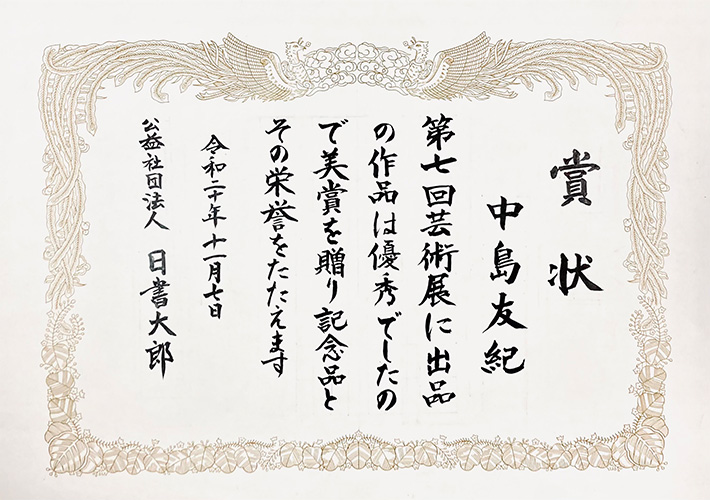 賞状
中島友紀
第七回芸術展に出品
の作品は優秀でしたの
で美賞を贈り記念品と
その栄誉をたたえます
令和二十年十一月七日
公益社団法人 日書大郎